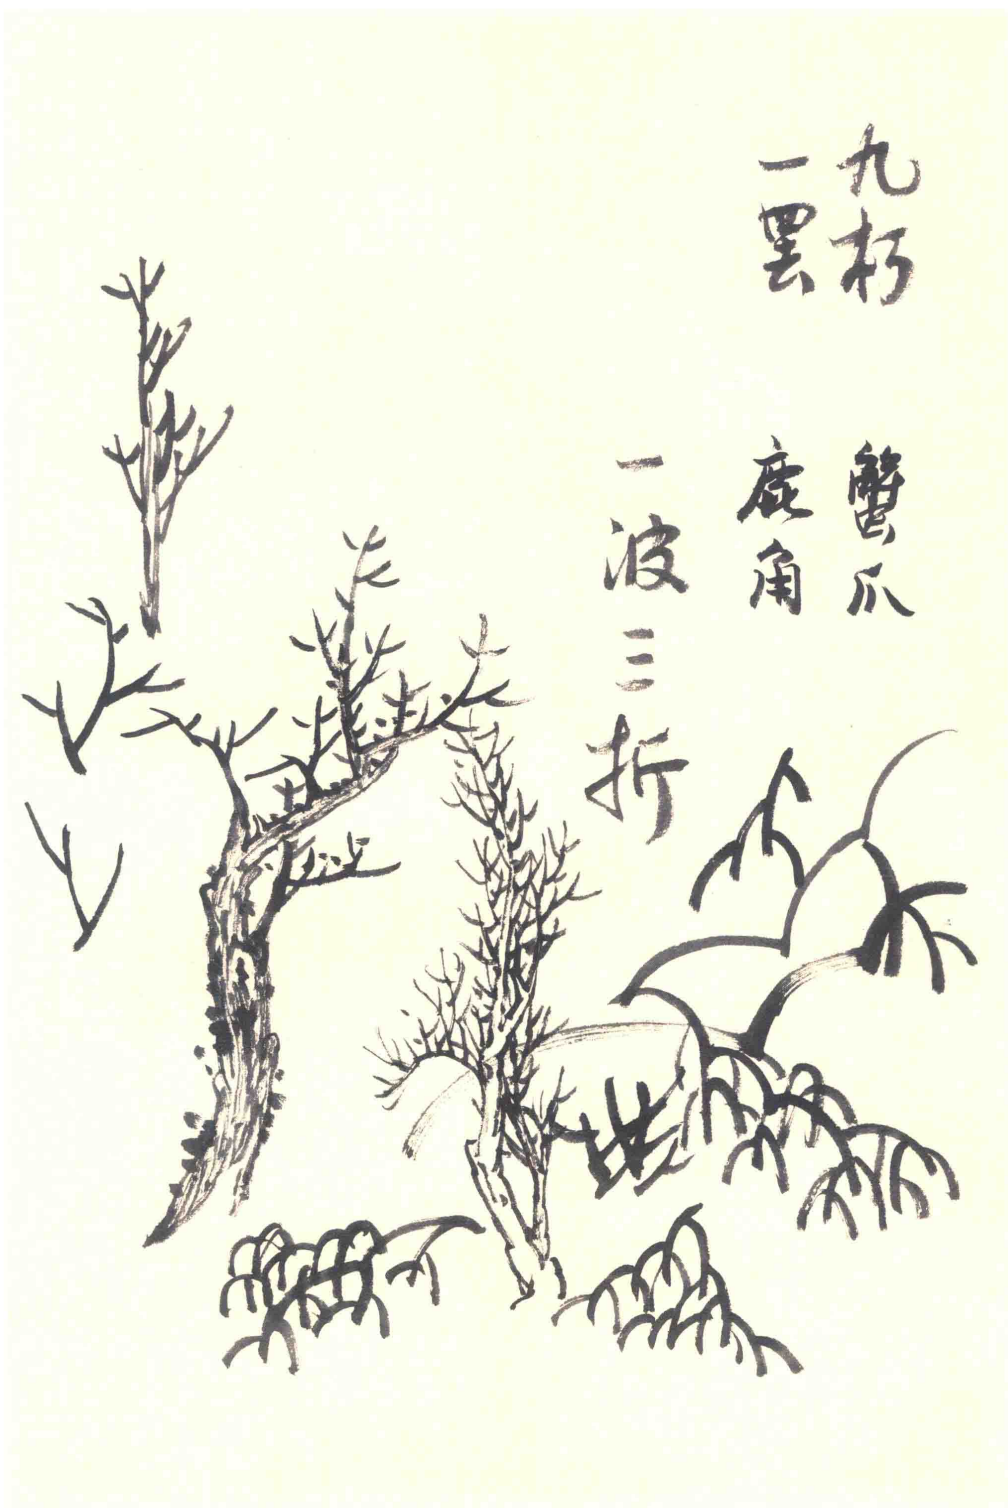 九朽
一罢
蟹爪
鹿角
一波三折